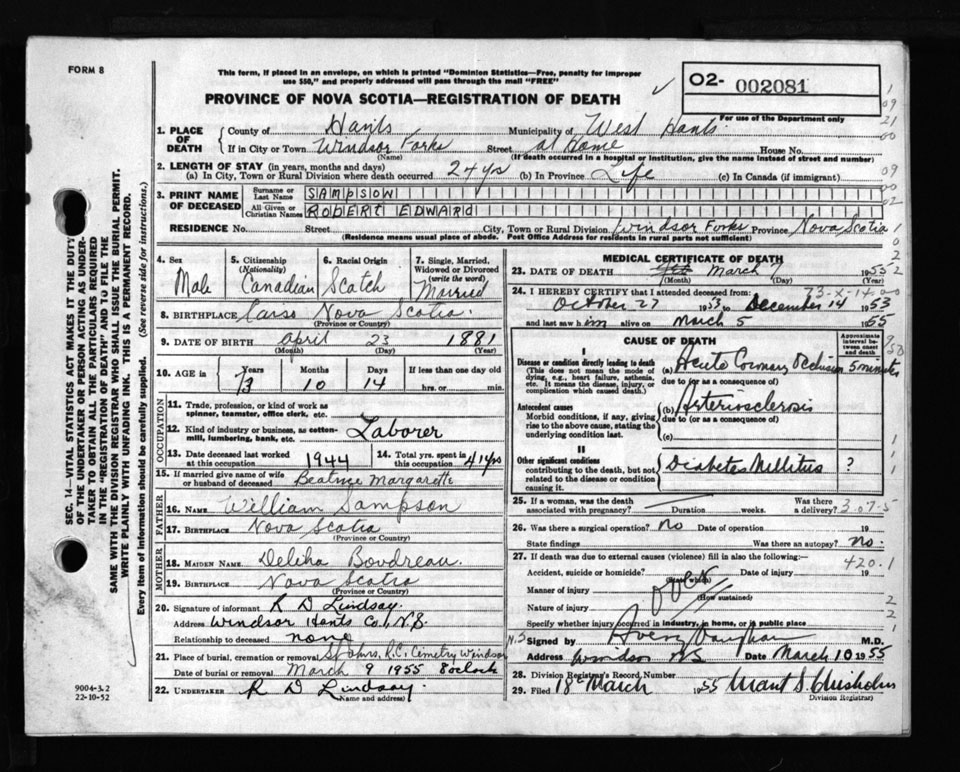 FORM 8
This form, if placed in an envelope, on which is printed "Dominion Statistics—Free, penalty for improper
use $50," and properly addressed will pass through the mail "FREE"
PROVINCE OF NOVA SCOTIA—REGISTRATION OF DEATH
O2- 002081
For use of the Department only
1. PLACE OF DEATH
County of Hants Municipality of West Hants
If in City or Town Windsor Forks Street at Home House No.
(Name) (If death occurred in a hospital or institution, give the name instead of street and number)
2. LENGTH OF STAY (in years, months and days)
(a) In City, Town or Rural Division where death occurred 24 yrs (b) In Province Life (c) In Canada (if immigrant)
3. PRINT NAME OF DECEASED
Surname or Last Name SAMPSOW
All Given or Christian Names ROBERT EDWARD
RESIDENCE No. Street City, Town or Rural Division Windsor Forks Province Nova Scotia
(Residence means usual place of abode. Post Office Address for residents in rural parts not sufficient)
4. Sex Male
5. Citizenship (Nationality) Canadian
6. Racial Origin Scotch
7. Single, Married, Widowed or Divorced (write the word) Married
8. BIRTHPLACE Nova Scotia.
(Province or Country)
9. DATE OF BIRTH April 23 1881
(Month) (Day) (Year)
10. AGE in Years 73 Months 10 Days 14 If less than one day old
hrs. or min.
OCCUPATION
11. Trade, profession, or kind of work as
spinner, teamster, office clerk, etc.
12. Kind of industry or business, as cotton-
mill, lumbering, bank, etc. Laborer
13. Date deceased last worked
at this occupation 1944
14. Total yrs. spent in
this occupation 41 yrs
15. If married give name of wife
or husband of deceased Beatrice Margarette
FATHER
16. NAME William Sampson
17. BIRTHPLACE Nova Scotia
(Province or Country)
MOTHER
18. MAIDEN NAME Boudreau.
19. BIRTHPLACE Nova Scotia
(Province or Country)
20. Signature of informant R D Lindsay.
Address Windsor Hants Co., N.S.
Relationship to deceased none
21. Place of burial, cremation or removal St Johns. R.C. Cemetry Windsor N.S
Date of burial or removal March 9 1955 8 oclock
22. UNDERTAKER R D Lindsay.
(Name and address)
MEDICAL CERTIFICATE OF DEATH
23. DATE OF DEATH March 7 1955
(Month) (Day) (Year)
24. I HEREBY CERTIFY that I attended deceased from:
October 27 1953 to December 14 1953
and last saw him alive on March 5 1955
CAUSE OF DEATH
Approximate interval between onset and death
I
Disease or condition directly leading to death
(This does not mean the mode of
dying, e.g., heart failure, asthenia,
etc. It means the disease, injury, or
complication which caused death.)
(a) Acute Coronary Occlusion 5 minutes
due to (or as a consequence of)
Antecedent causes
Morbid conditions, if any, giving
rise to the above cause, stating the
underlying condition last.
(b) Arteriosclerosis
due to (or as a consequence of)
(c)
II
Other significant conditions
contributing to the death, but not
related to the disease or condition
causing it.
Diabetes Mellitus ?
25. If a woman, was the death
associated with pregnancy? Duration weeks. Was there a delivery?
3-07-5
26. Was there a surgical operation? No Date of operation 19
State findings Was there an autopsy? No.
27. If death was due to external causes (violence) fill in also the following:—
420.1
Accident, suicide or homicide? (State which) Date of injury 19
Manner of injury
(How sustained)
Nature of injury
Specify whether injury occurred in industry, in home, or in public place
Signed by Vaughan M.D.
Address Windsor NS Date March 10 1955
28. Division Registrar's Record Number
29. Filed 18 March 1955 S. Chisholm
(Division Registrar)
SEC. 14—VITAL STATISTICS ACT MAKES IT THE DUTY
OF THE UNDERTAKER OR PERSON ACTING AS UNDER-
TAKER TO OBTAIN ALL THE PARTICULARS REQUIRED
IN THE "REGISTRATION OF DEATH" AND TO FILE THE
SAME WITH THE DIVISION REGISTRAR WHO SHALL ISSUE THE BURIAL PERMIT.
WRITE PLAINLY WITH UNFADING INK. THIS IS A PERMANENT RECORD.
Every item of information should be carefully supplied. (See reverse side for instructions.)
9004-3.2
22-10-52